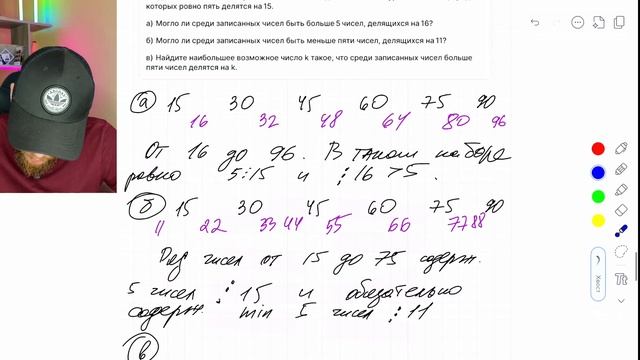 которых ровно пять делятся на 15.
а) Могло ли среди записанных чисел быть больше 5 чисел, делящихся на 16?
б) Могло ли среди записанных чисел быть меньше пяти чисел, делящихся на 11?
в) Найдите наибольшее возможное число k такое, что среди записанных чисел больше
пяти чисел делятся на k.
а 15 30 45 60 75 90
16 32 48 64 80 96
От 16 до 96. В таком наборе
ровно 5⋮15 и ⋮16 > 5.
б 15 30 45 60 75 90
11 22 33 44 55 66 77 88
Ряд чисел от 15 до 75 содерж.
5 чисел ⋮ 15 и обязательно
содерж. min 5 чисел ⋮ 11
в
Хвост
Tt
adidas